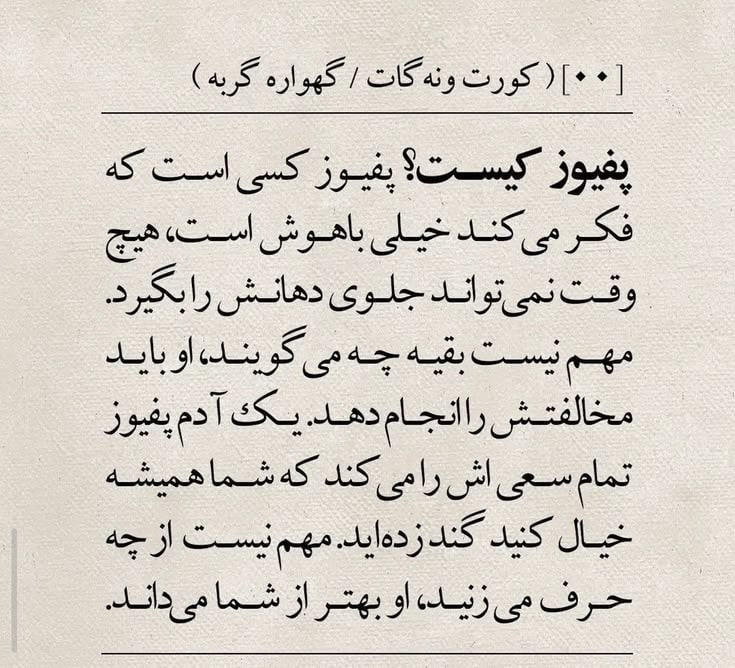 [۰۰] ( کورت ونه گات / گهواره گربه )
پفیوز کیست؟ پفیوز کسی است که
فکر می‌کند خیلی باهوش است، هیچ
وقت نمی‌تواند جلوی دهانش را بگیرد.
مهم نیست بقیه چه می‌گویند، او باید
مخالفتش را انجام دهد. یک آدم پفیوز
تمام سعی اش را می‌کند که شما همیشه
خیال کنید گند زده‌اید. مهم نیست از چه
حرف می‌زنید، او بهتر از شما می‌داند.